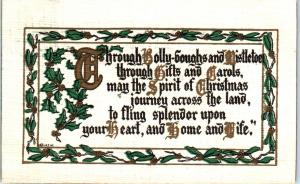 Through Holly-boughs and Mistletoe
through Gifts and Carols,
may the Spirit of Christmas
journey across the land,
to fling splendor upon
your Heart, and Home and Life."